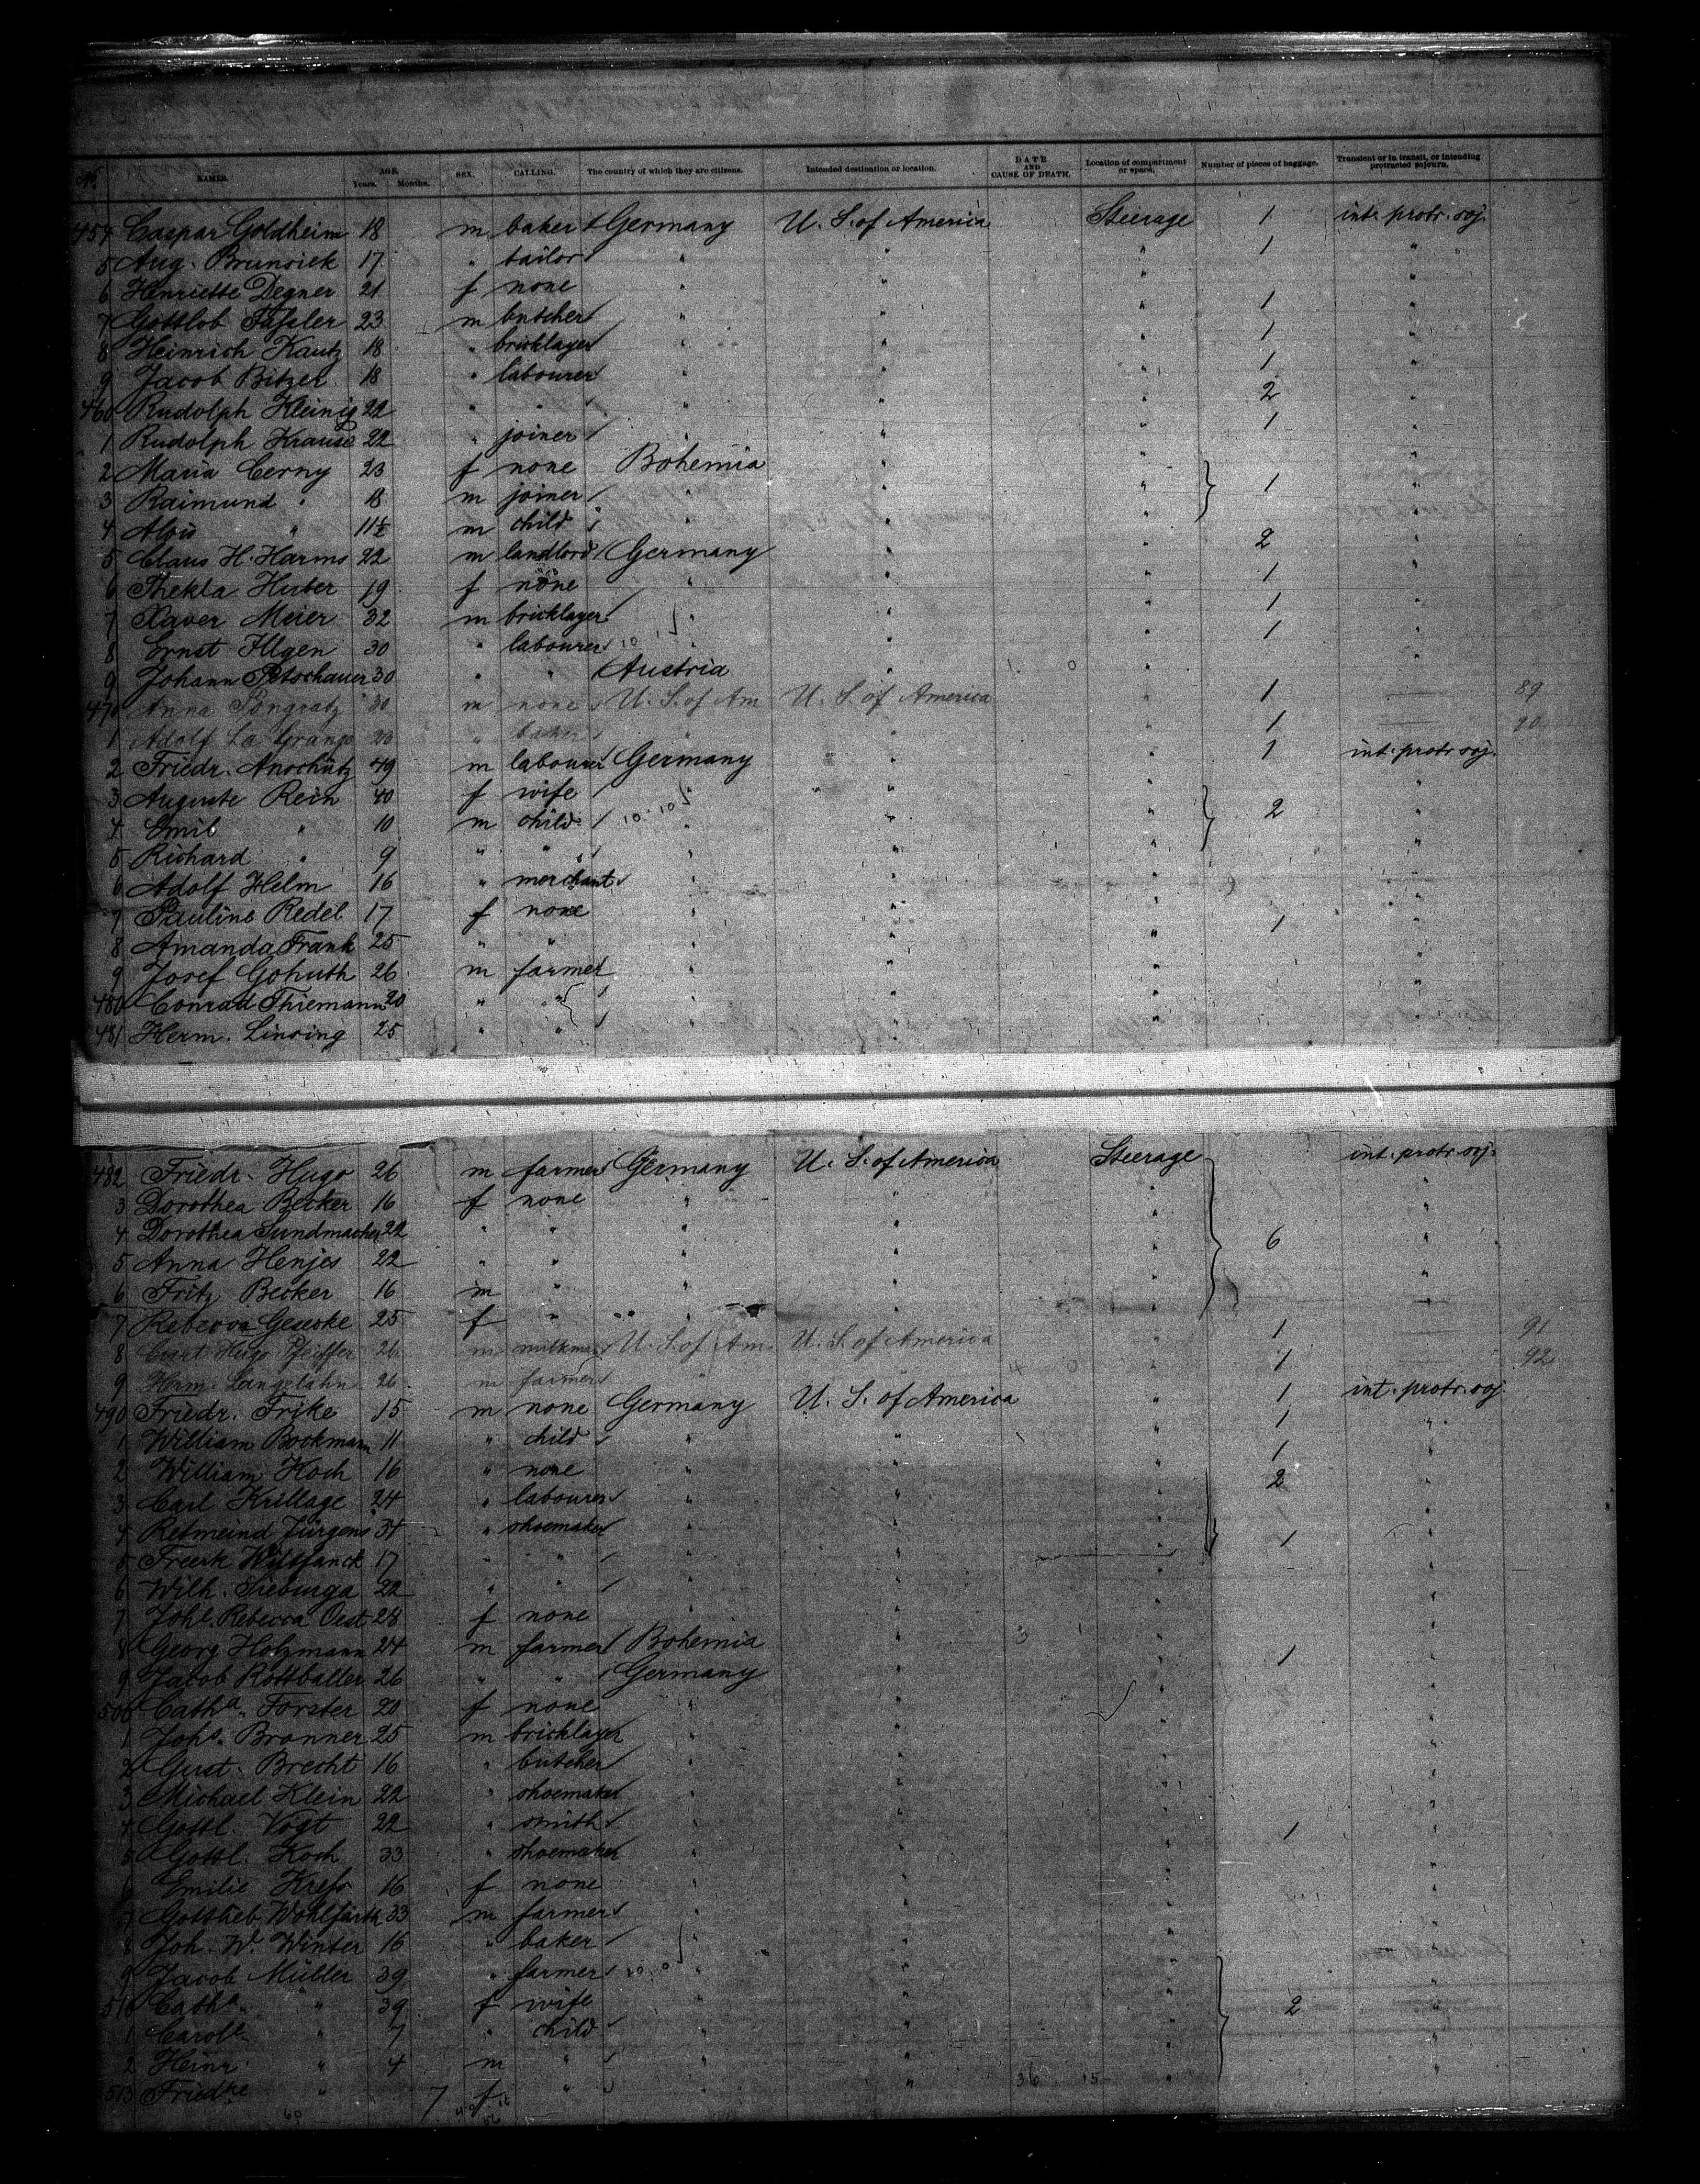 No. NAMES. AGE. Years. Months. SEX. CALLING. The country of which they are citizens. Intended destination or location. DATE AND CAUSE OF DEATH. Location of compartment or space. Number of pieces of baggage. Transient or in transit, or intending protracted sojourn.
454 Caspar Goldheim 18 m baker Germany U. S. of America Steerage 1 int. protr. soj.
5 Aug. Brunsiek 17 " tailor " " " 1 "
6 Henriette Degner 21 f none " " " "
7 Gottlob Faßler 23 m butcher " " " 1 "
8 Heinrich Kautz 18 " bricklayer " " " 1 "
9 Jacob Bitzer 18 " labourer " " " 1 "
460 Rudolph Kleinig 22 " " " " " 2 "
1 Rudolph Krause 22 " joiner " " " 1 "
2 Maria Cerny 23 f none Bohemia " " "
3 Raimund " 18 m joiner " " " 1 "
4 Alois " 11½ m child " " " "
5 Claus H. Harms 22 m landlord Germany " " 2 "
6 Thekla Huber 19 f none " " " 1 "
7 Xaver Meier 32 m bricklayer " " " 1 "
8 Ernst Illgen 30 " labourer " " " 1 "
9 Johann Petschauer 30 " " Austria " " "
470 Anna Pongratz 30 m none U. S. of Am U. S. of America " 1 — 89
1 Adolf La Grange 23 " baker " " " 1 — 90
2 Friedr. Anschütz 49 m labourer Germany " " 1 int. protr. soj.
3 Auguste Rein 40 f wife " " " "
4 Emil " 10 m child " " " 2 "
5 Richard " 9 " " " " " "
6 Adolf Helm 16 " merchant " " " "
7 Pauline Redel 17 f none " " " 1 "
8 Amanda Frank 25 " " " " " "
9 Josef Gohuth 26 m farmer " " " "
480 Conrad Thiemann 20 " " " " " "
481 Herm. Linsing 25 " " " " " "
482 Friedr. Hugo 26 m farmer Germany U. S. of America Steerage int. protr. soj.
3 Dorothea Becker 16 f none " " " "
4 Dorothea Sundmacher 22 " " " " " 6 "
5 Anna Henjes 22 " " " " " "
6 Fritz Becker 16 m " " " " "
7 Rebecca Geseoke 25 f " " " "
8 Curt Hugo Pfeiffer 26 m milkman U. S. of Am. U. S. of America " 1 — 91
9 Herm. Langelahn 26 m farmer " " " 1 — 92
490 Friedr. Frike 15 m none Germany U. S. of America " 1 int. protr. soj
1 William Bookmann 11 " child " " " 1 "
2 William Koch 16 " none " " " 1 "
3 Carl Krillage 24 " labourer " " " 2 "
4 Retmeind Jürgens 34 " shoemaker " " " "
5 Freerk 17 " " " " " 1 "
6 Wilh. Siebinga 22 " " " " " "
7 Joh. Rebecca Oest 28 f none " " " "
8 Georg Holzmann 24 m farmer Bohemia " " "
9 Jacob Rottballer 26 " " Germany " " 1 "
500 Catha. Forster 20 f none " " " "
1 Johs. Bronner 25 m bricklayer " " " "
2 Gust. Brecht 16 " butcher " " " "
3 Michael Klein 22 " shoemaker " " " "
4 Gottl. Vogt 22 " smith " " " 1 "
5 Gottl. Koch 33 " shoemaker " " " "
6 Emilie Kreß 16 f none " " " "
7 Gottlieb Wohlfarth 33 m farmer " " " "
8 Joh. W. Winter 16 " baker " " " "
9 Jacob Müller 39 " farmer " " " "
510 Catha. " 39 f wife " " " 2 "
1 Carole " 7 " child " " " "
2 Heinr. " 4 m " " " " "
513 Friedke " 7 f " " " "